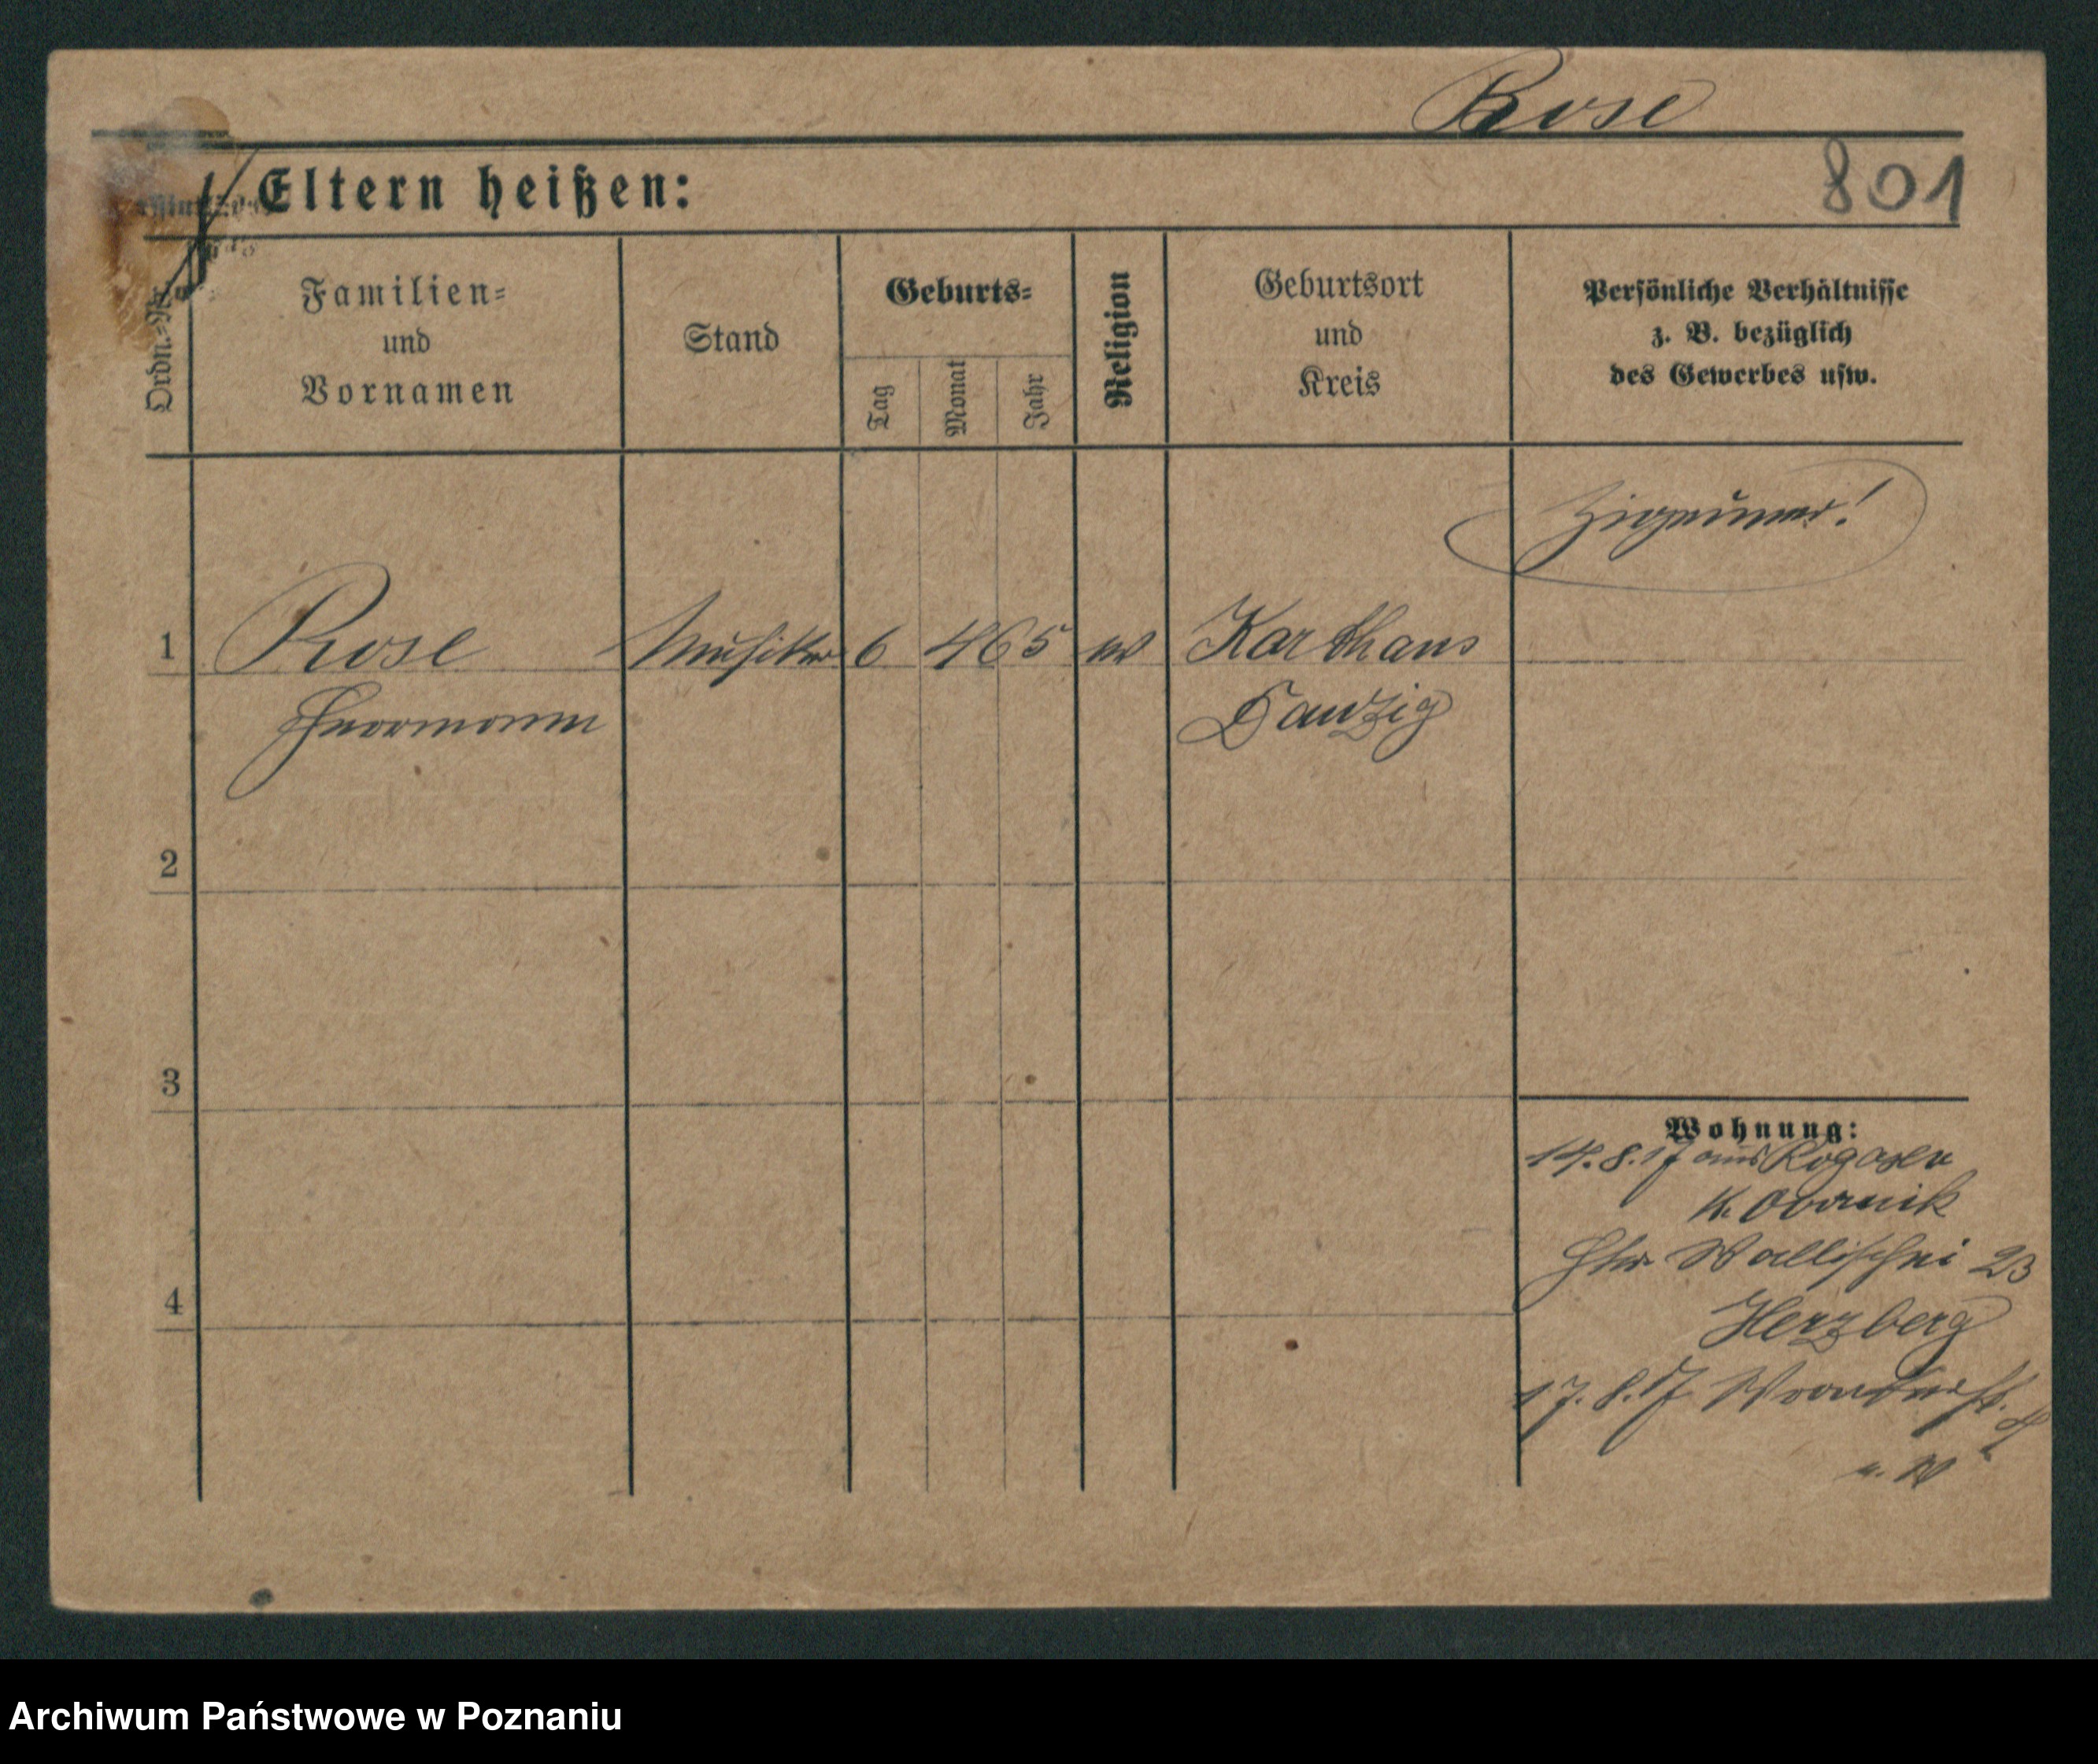 Rose
Eltern heißen:
801
Ordn.-Nr.
Familien-
und
Vornamen
Stand
Geburts-
Tag
Monat
Jahr
Religion
Geburtsort
und
Kreis
Persönliche Verhältnisse
z. B. bezüglich
des Gewerbes usw.
Zigeuner!
1 Rose Musiker 6 4 65 ev Karthaus
Herrmann Danzig
2
3
4
Wohnung:
14.8.17 aus Rogasen
K. Obornik
Wallischei 23
Herzberg
17.8.17